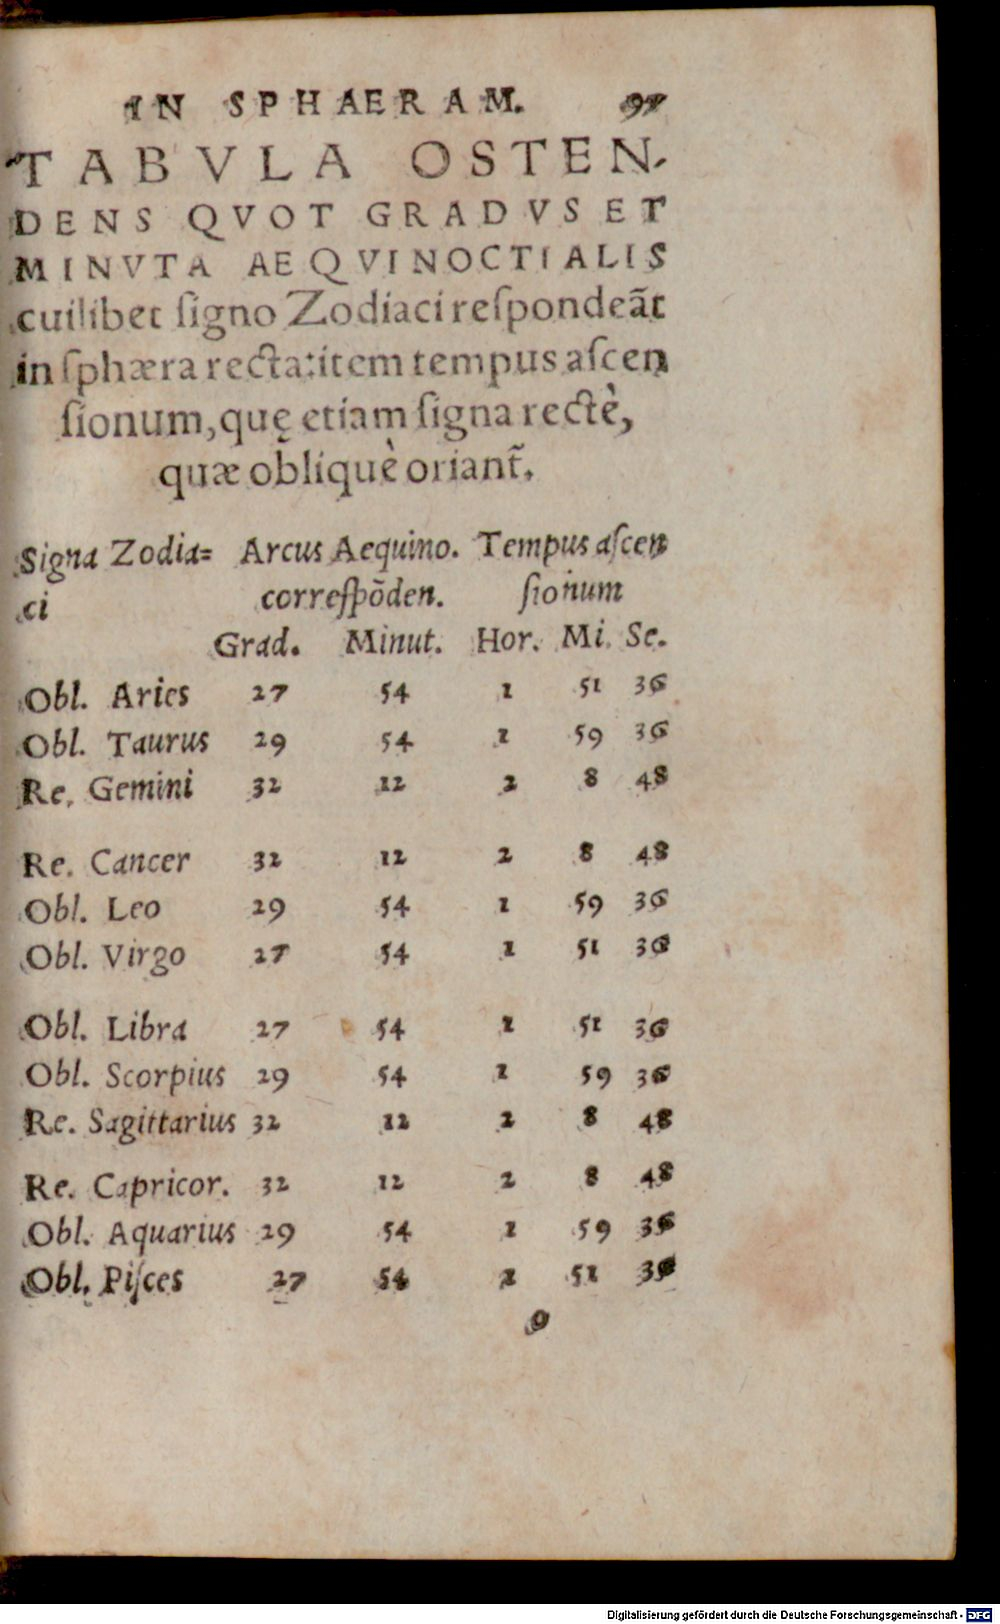 IN SPHAERAM. 97
TABVLA OSTEN-
DENS QVOT GRADVS ET
MINVTA AEQVINOCTIALIS
cuilibet ſigno Zodiaci reſpondeãt
in ſphæra recta: item tempus aſcen
ſionum, quę etiam ſigna rectè,
quæ obliquè oriant̃.
Signa Zodia= Arcus Aequino. Tempus aſcen
ci correſpõden. ſionum
Grad. Minut. Hor. Mi. Se.
Obl. Aries 27 54 1 51 36
Obl. Taurus 29 54 1 59 36
Re. Gemini 32 12 2 8 48
Re. Cancer 32 12 2 8 48
Obl. Leo 29 54 1 59 36
Obl. Virgo 27 54 1 51 36
Obl. Libra 27 54 1 51 36
Obl. Scorpius 29 54 1 59 36
Re. Sagittarius 32 12 2 8 48
Re. Capricor. 32 12 2 8 48
Obl. Aquarius 29 54 1 59 36
Obl. Piſces 27 54 1 51 36
o
Digitalisierung gefördert durch die Deutsche Forschungsgemeinschaft - DFG